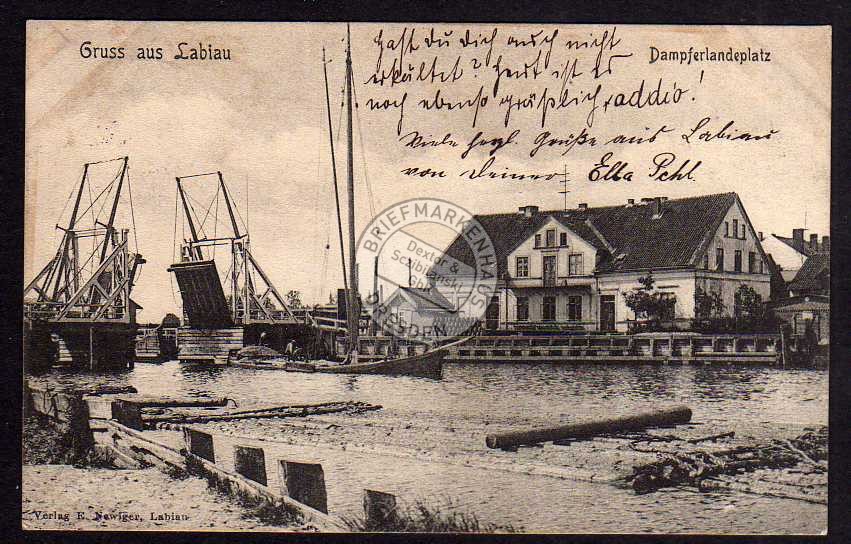 Gruss aus Labiau
Dampferlandeplatz
Hast du dich auch nicht
erkältet? Heut ist es
noch ebenso gräßlich, addio!
Viele herzl. Grüße aus Labiau
von Deiner Ella Pehl.
BRIEFMARKENHAUS
Dextor &
Scibilanski
GbR
DRESDEN
Verlag E. Newiger, Labiau